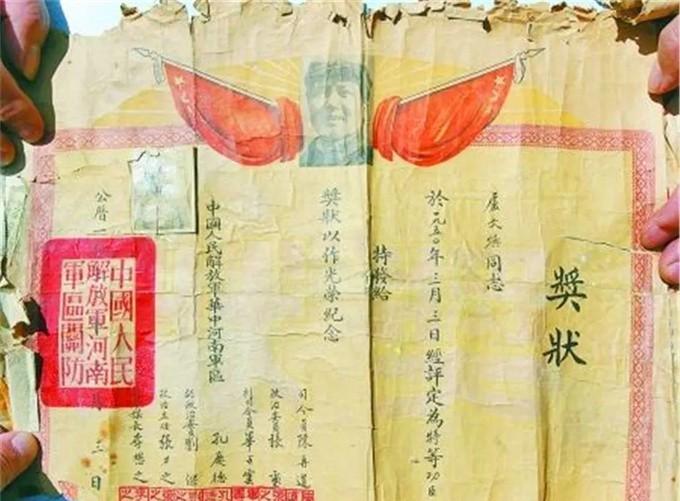 獎狀
盧文煥同志
於一九五〇年三月三日經評定為特等功臣
特發給
獎狀以作光榮紀念
中國人民解放軍華中河南軍區
司令員陳再道
政治委員張璽
副司令員畢占雲
孔慶德
副政治委員劉傑
政治主任張力之
李懋之
公曆一
月三日
中國人民
解放軍河南
軍區關防